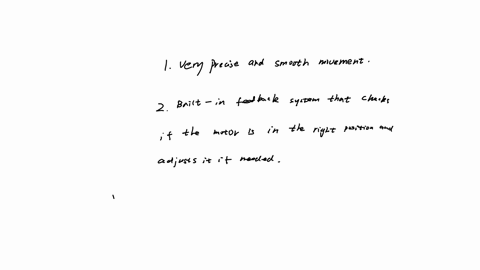 1. Very precise and smooth movement.
2. Built-in feedback system that checks
if the motor is in the right position and
adjusts it if needed.